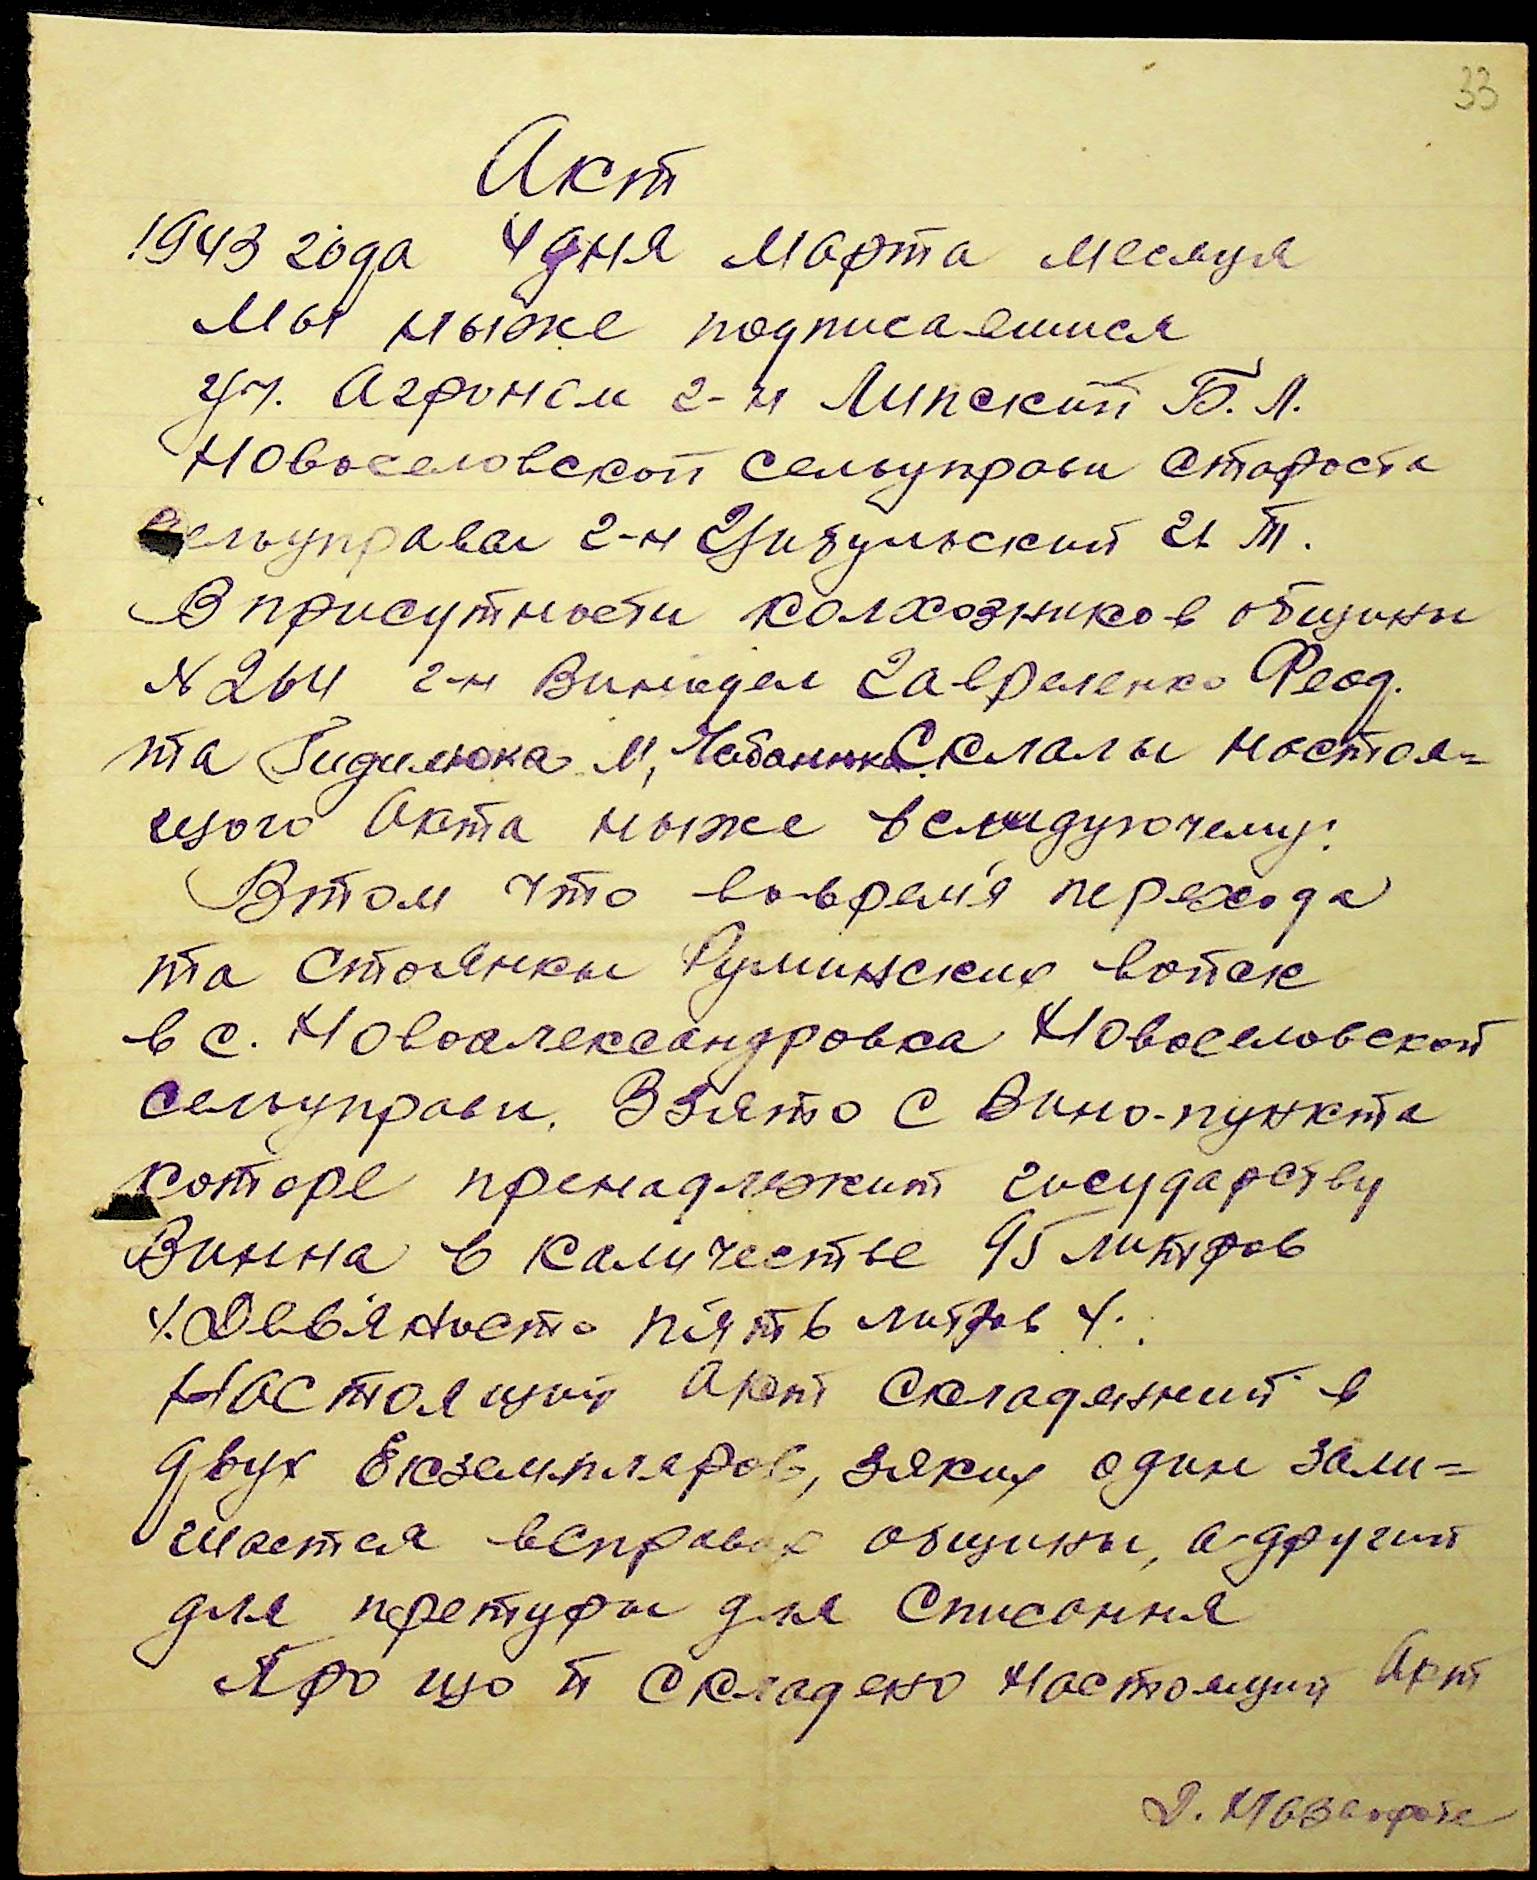 33
Акт
1943 года 4 дня марта месяця
Мы ныже подписавшися
уч. Агроном г-н Липский Б. Л.
Новоселовской сельуправи староста
сельуправы г-н Цибульский И. Т.
В присутности колхозников общины
№ 264 г-н Винодел Гавреленко Феод.
та Гидилюка М, Чабанюка. Склалы настоя=
щого Акта ныже вслидуючему:
Втом что вовремя перехода
та стоянкы Руминских войск
в с. Новоалександровка Новоселовской
сельуправи. Взято с Вино-пункта
которе пренадлежит государству
Винна в количестве 95 литров
/. Девяносто пять литров /.
Настоящий акт складенний в
двух Екземпляров, зяких один зали=
шается всправах общины, а другий
для претуры для списання
Про що й складено настоящий Акт